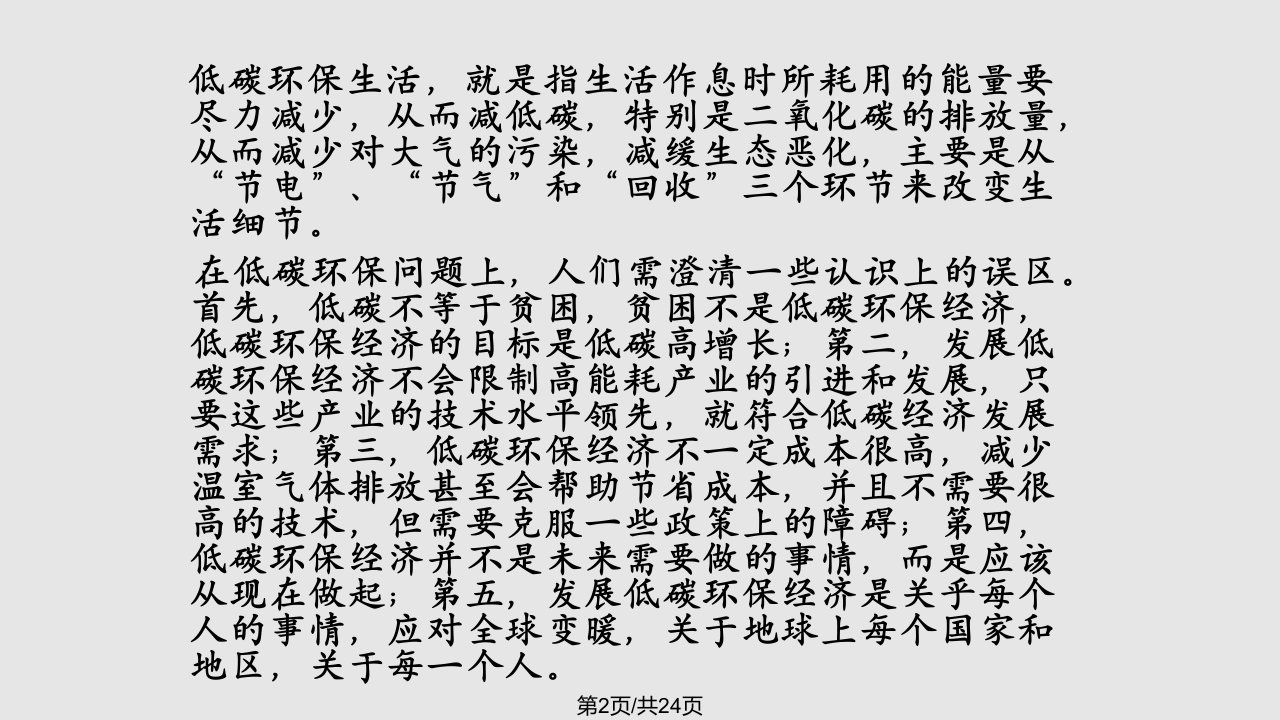 低碳环保生活，就是指生活作息时所耗用的能量要
尽力减少，从而减低碳，特别是二氧化碳的排放量，
从而减少对大气的污染，减缓生态恶化，主要是从
“节电”、“节气”和“回收”三个环节来改变生
活细节。
在低碳环保问题上，人们需澄清一些认识上的误区。
首先，低碳不等于贫困，贫困不是低碳环保经济，
低碳环保经济的目标是低碳高增长；第二，发展低
碳环保经济不会限制高能耗产业的引进和发展，只
要这些产业的技术水平领先，就符合低碳经济发展
需求；第三，低碳环保经济不一定成本很高，减少
温室气体排放甚至会帮助节省成本，并且不需要很
高的技术，但需要克服一些政策上的障碍；第四，
低碳环保经济并不是未来需要做的事情，而是应该
从现在做起；第五，发展低碳环保经济是关乎每个
人的事情，应对全球变暖，关于地球上每个国家和
地区，关于每一个人。
第2页/共24页